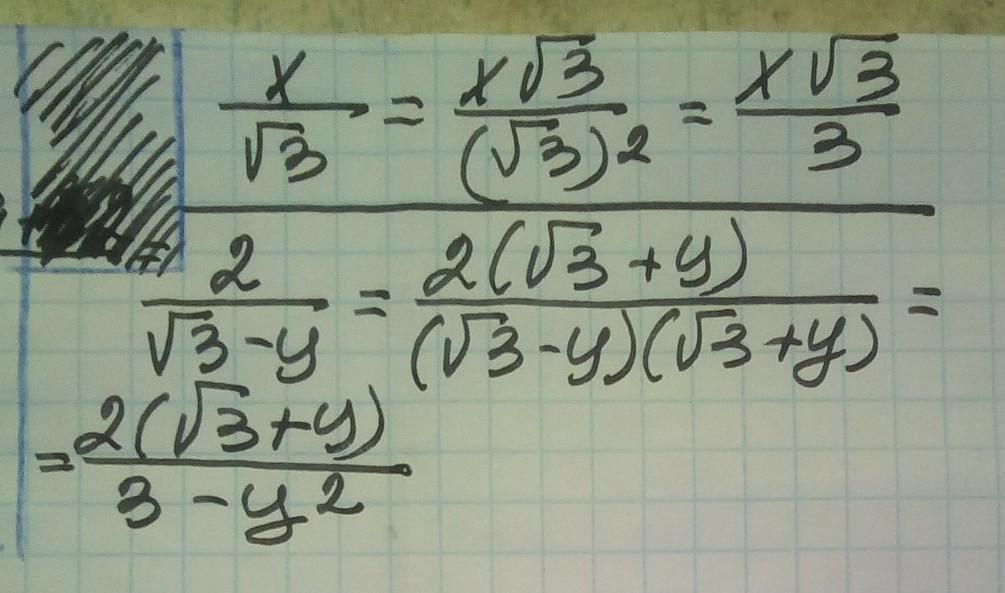 x/√3 = x√3/(√3)2 = x√3/3
2/(√3-y) = 2(√3+y)/((√3-y)(√3+y)) =
= 2(√3+y)/(3-y2)